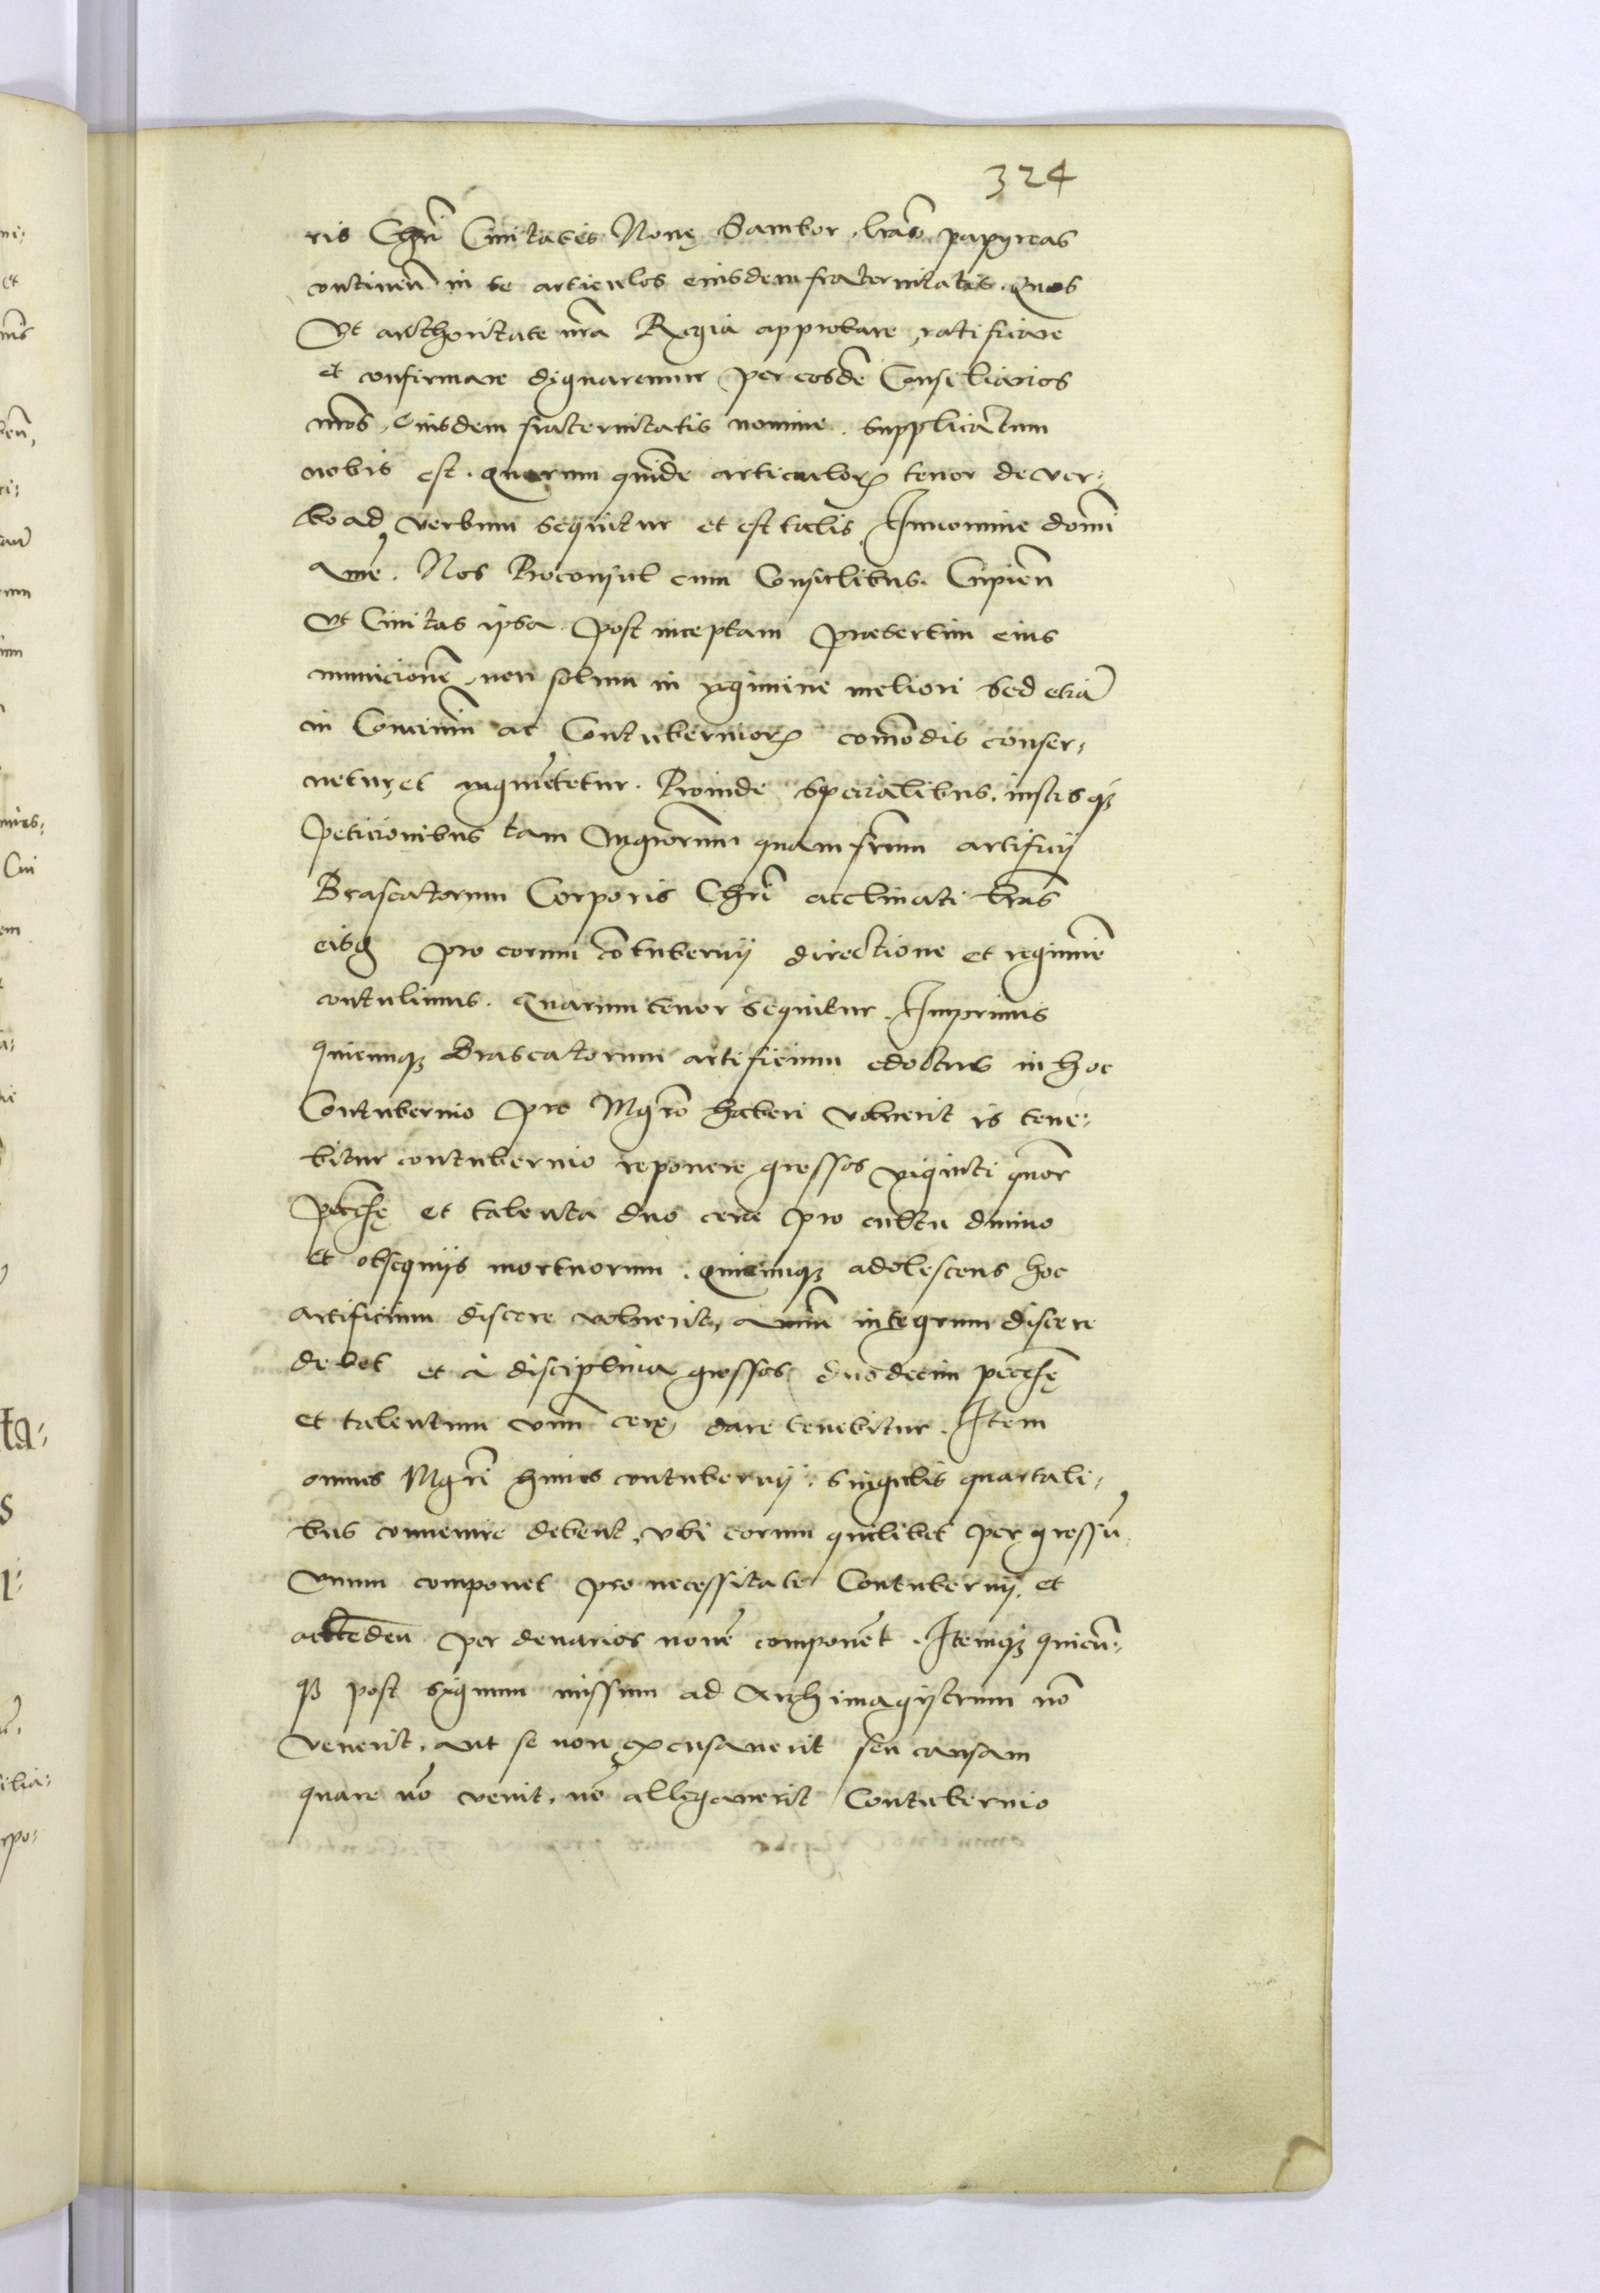 324
ris Chri Ciuitatis Noue Sambor, lras papyreas
continen in se articulos eiusdem fraternitatis. Quos
Vt authoritate nra Regia approbare, ratificare
et confirmare dignaremur per eosde Consiliarios
nros, Eiusdem fraternitatis nomine supplicatum
nobis est. Quorum quide articulor tenor de ver-
bo ad verbum sequitur et est talis. In nomine domi
Ame. Nos Proconsul cum Consulibus. Cupien
Vt Ciuitas ipsa post inceptam praesertim eius
municione, non solum in regimine meliori sed etia
in Conciuium ac Contubernior comodis conser-
uetur, et augmetetur. Proinde specialibus, iustisq
peticionibus tam Mgrorum quam frum artificij
Braseatorum Corporis Chri acclinati lras
eisd pro eorum cotubernij directione et regimine
contulimus. Quarum tenor sequitur. Inprimis
quicumq Braseatorum artificium edoctus in hoc
Contubernio pro Mgro haberi voluerit is tene-
bitur contubernio reponere grossos viginti quor
pecche et talenta duo cere pro cultu diuino
et obsequijs mortuorum. Quicumq adolescens hoc
artificium discere voluerit, annu integrum discere
debet et à disciplina grossos duodecim pecche
et talentum vnu cere dare tenebitur. Item
omnes Mgri huius contubernij. singulis quartali-
bus conuenire debent, vbi eorum quilibet per grossu
vnum componet pro necessitate Contubernij, et
per denarios noue component. Itemq quicu-
q post signum missum ad Archimagistrum no
venerit, aut se non excusauerit seu causam
quare no venit, no allegauerit Contubernio